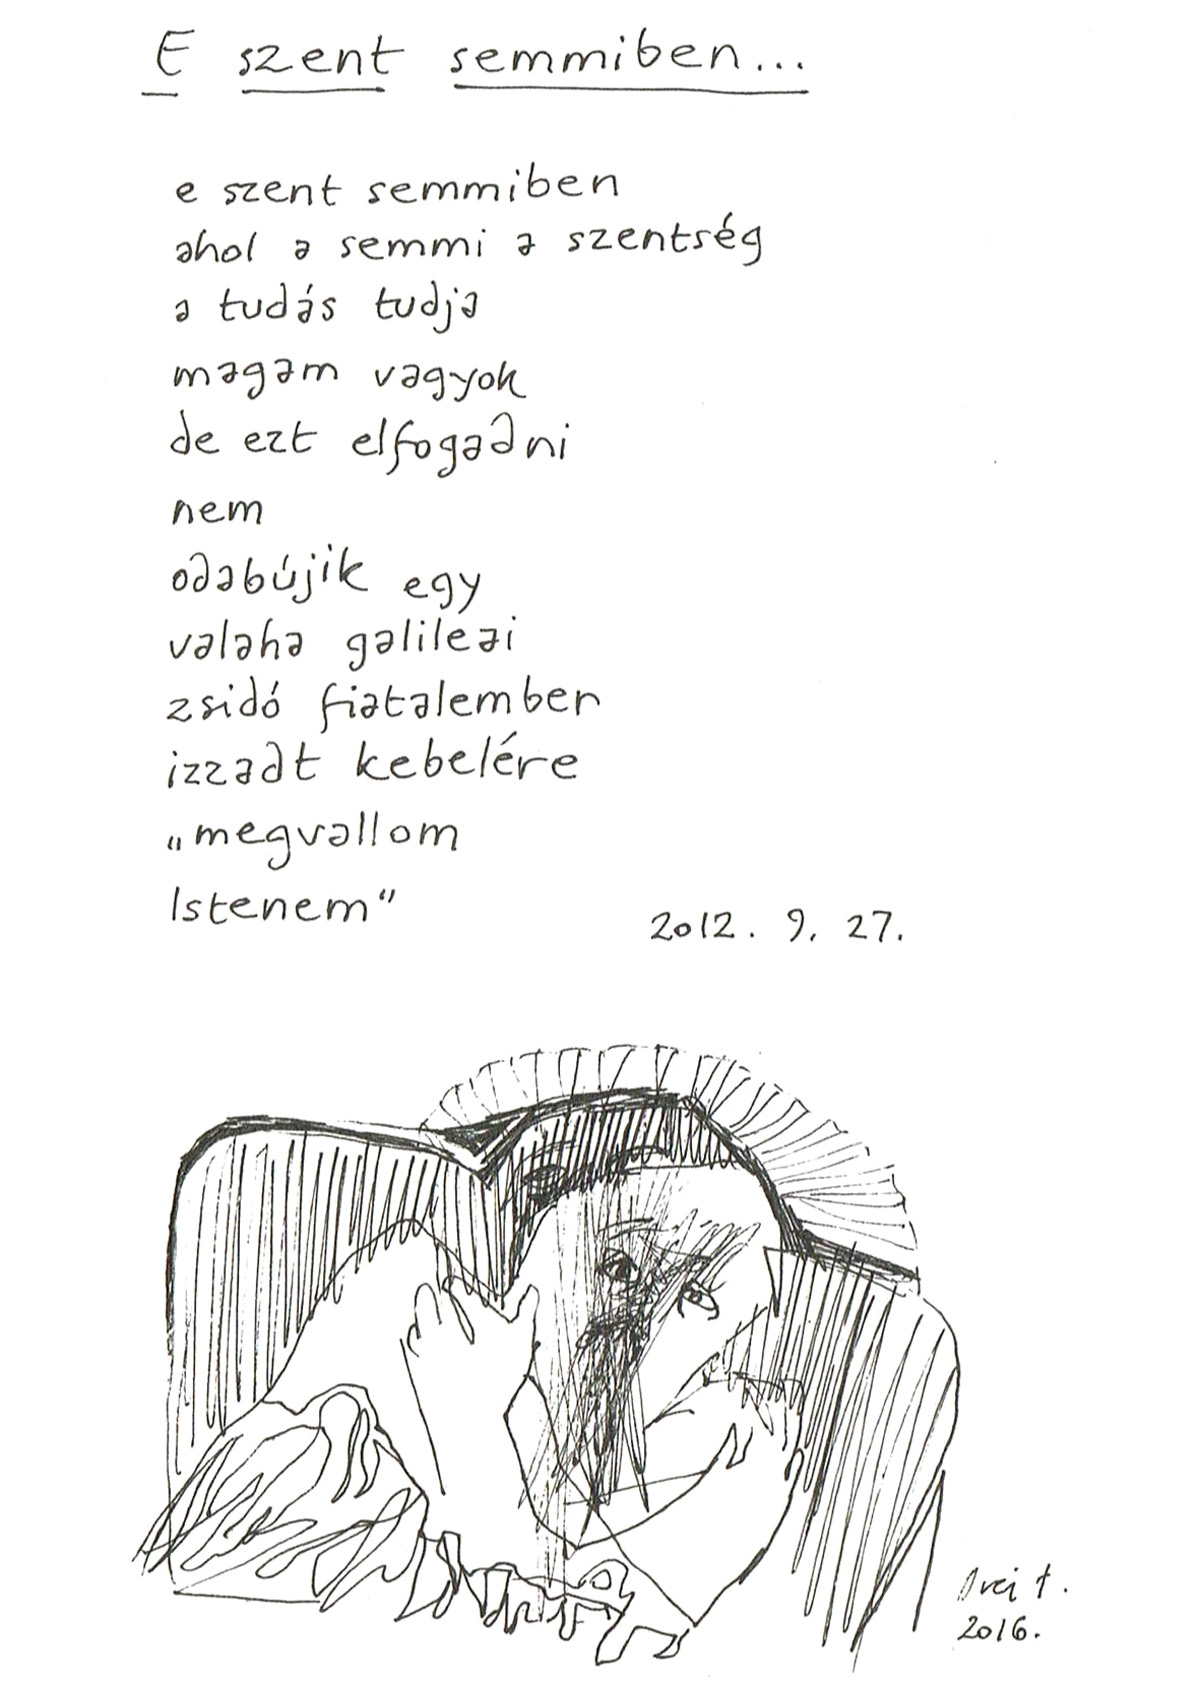 E szent semmiben...
e szent semmiben
ahol a semmi a szentség
a tudás tudja
magam vagyok
de ezt elfogadni
nem
odabújik egy
valaha galileai
zsidó fiatalember
izzadt kebelére
„megvallom
Istenem"
2012. 9. 27.
2016.